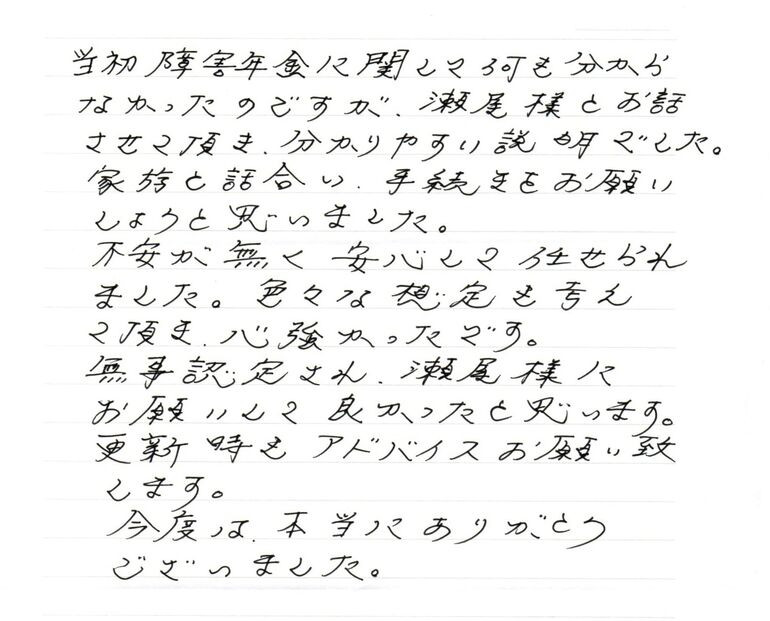 当初障害年金に関して何も分から
なかったのですが、瀬尾様とお話
させて頂き、分かりやすい説明でした。
家族と話合い、手続きをお願い
しようと思いました。
不安が無く安心して任せられ
ました。色々な想定も考え
て頂き、心強かったです。
無事認定され、瀬尾様に
お願いして良かったと思います。
更新時もアドバイスお願い致
します。
今度は、本当にありがとう
ございました。